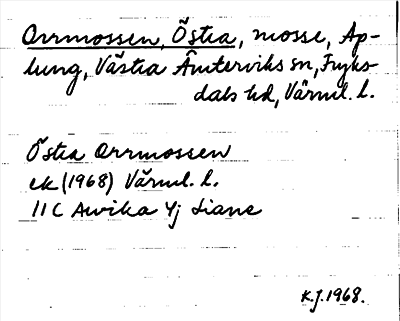 Orrmossen, Östra, mosse, Ap-
lung, Västra Ämterviks sn, Fryks-
dals hd, Värml. l.
Östra Orrmossen
ek (1968) Värml. l.
11C Arvika 4j
K.J. 1968.